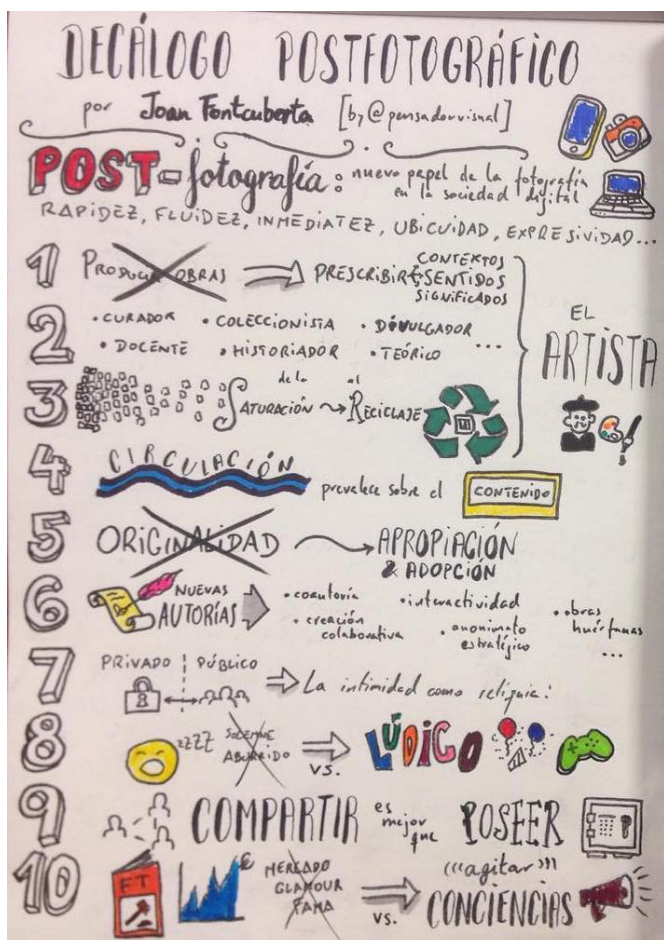 DECÁLOGO POSTFOTOGRÁFICO
por Joan Fontcuberta [by @pensadorvisual]
POST-fotografía: nuevo papel de la fotografía
en la sociedad digital
RAPIDEZ, FLUIDEZ, INMEDIATEZ, UBICUIDAD, EXPRESIVIDAD...
1 PRODUCIR OBRAS PRESCRIBIR CONTEXTOS
SENTIDOS
SIGNIFICADOS
2 • CURADOR • COLECCIONISTA • DIVULGADOR
• DOCENTE • HISTORIADOR • TEÓRICO ...
EL
ARTISTA
3 de la SATURACIÓN al RECICLAJE
4 CIRCULACIÓN prevalece sobre el CONTENIDO
5 ORIGINALIDAD APROPIACIÓN
& ADOPCIÓN
6 NUEVAS AUTORÍAS • coautoría • interactividad • obras huérfanas
• creación colaborativa • anonimato estratégico ...
7 PRIVADO PÚBLICO La intimidad como reliquia!
8 zzzz SOLEMNE
ABURRIDO vs. LÚDICO
9 COMPARTIR es mejor que POSEER
10 FT € MERCADO
GLAMOUR
FAMA vs. (((agitar)))
CONCIENCIAS